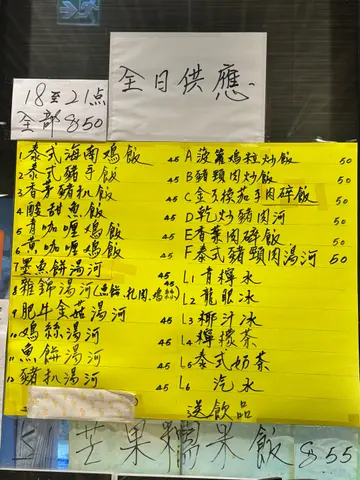 全日供應
18至21点
全部$50
1.泰式海南鸡飯 45
2.泰式豬手飯 45
3.香茅豬扒飯 45
4.酸甜魚飯 45
5.青咖喱鸡飯 45
6.黄咖喱鸡飯 45
7.墨魚餅湯河 45
8.雜錦湯河(魚餅,扎肉,鸡絲) 45
9.肥牛金菇湯河 45
10鸡絲湯河 45
11魚餅湯河 45
12豬扒湯河 45
A菠蘿鸡粒炒飯 50
B豬頸肉炒飯 50
C金不換茄子肉碎飯 50
D乾炒豬肉河 50
E香葉肉碎飯 50
F泰式豬頸肉湯河 50
L1青檸水
L2龍眼冰
L3椰汁冰
L4檸檬茶
L5泰式奶茶
L6汽水
送飲品
芒果糯米飯$55